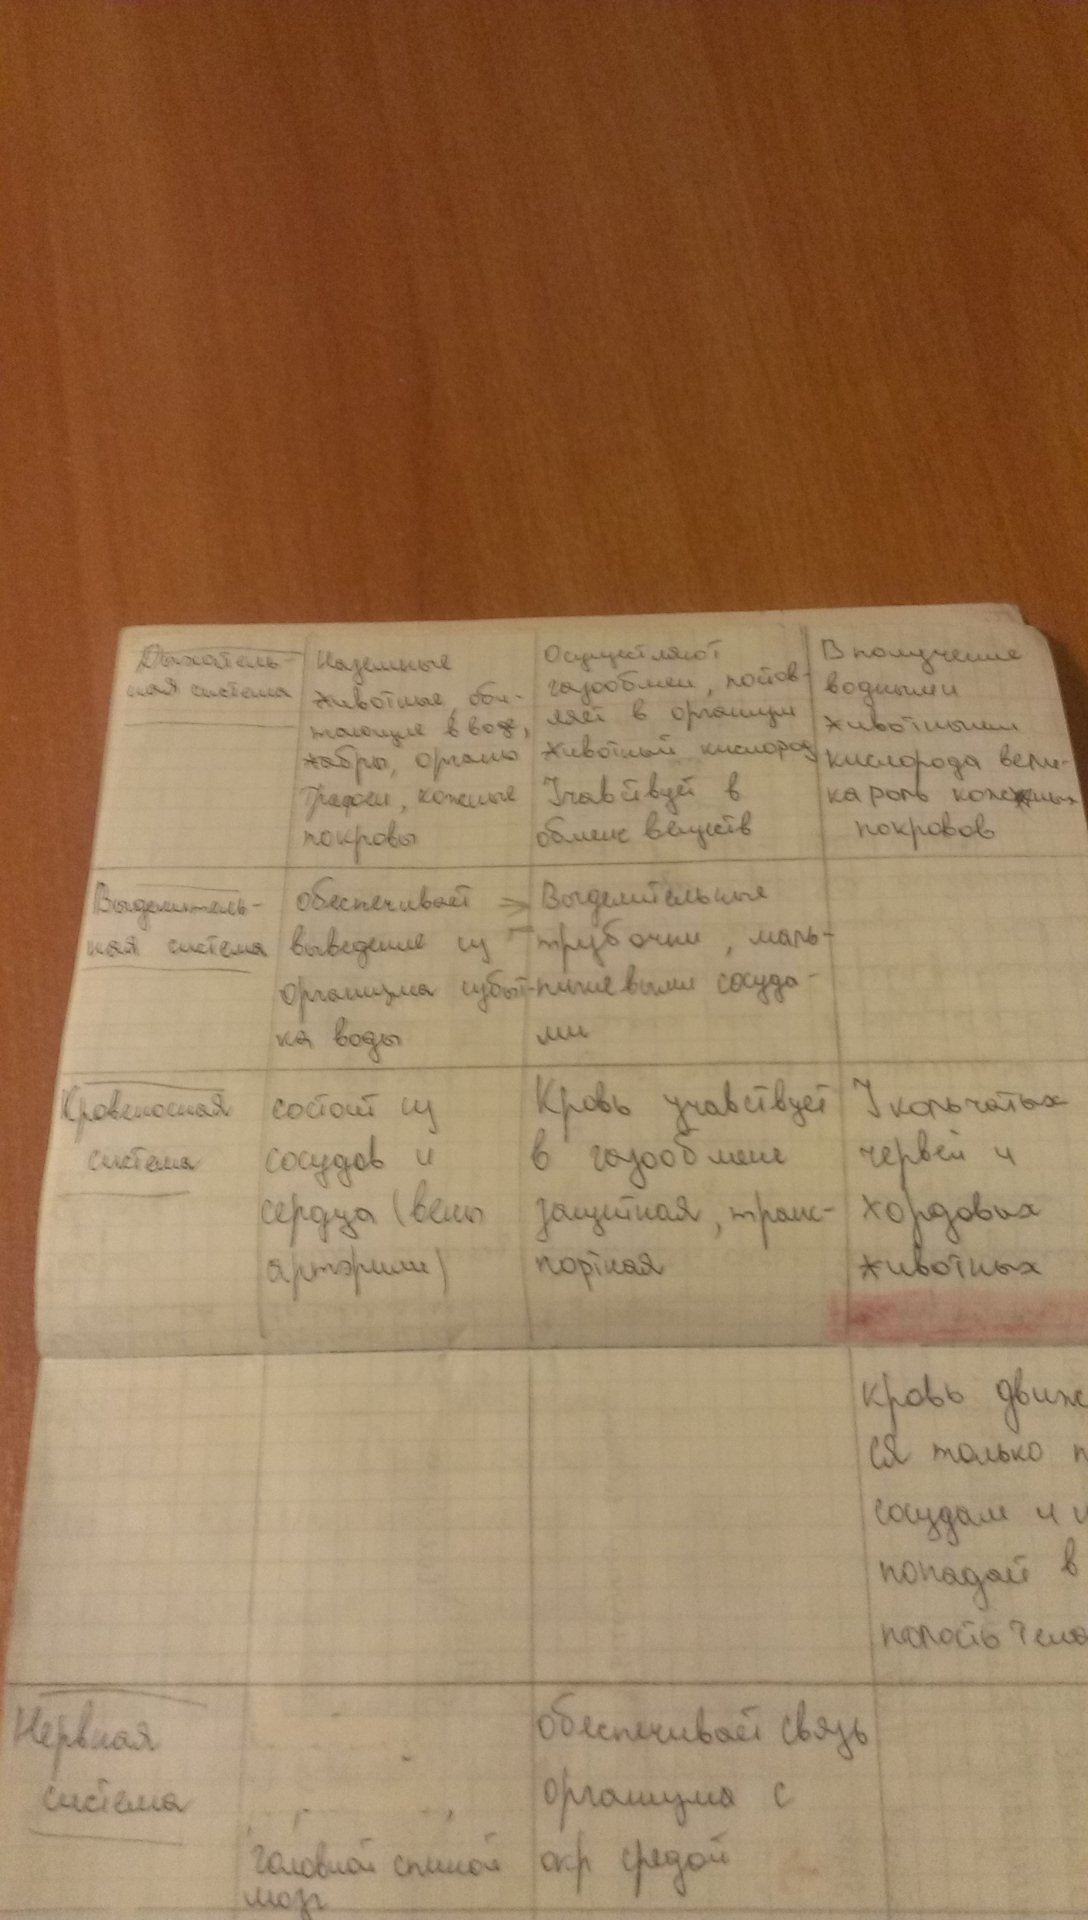 Дыхатель-
ная система
Наземные
животные, оби-
тающие в воде,
жабры, органы
Трахеи, кожные
покровы
Осуществляют
газообмен, постов-
ляет в организм
животный кислород
Учавствует в
обмене веществ
В получение
водными
животными
кислорода вели-
ка роль кожных
покровов
Выделитель-
ная система
обеспечивает
выведение из
организма избыт-
ка воды
Выделительные
трубочки, маль-
пигиевыми сосуда-
ми
Кровеносная
система
состоит из
сосудов и
сердца (вены
артэрии)
Кровь учавствует
в газообмене
защитная, транс-
портная
У кольчатых
червей и
хордовых
животных
кровь движе
ся только п
сосудам и
попадает в
полость тела
Нервная
система
головной спиной
мозг
обеспечивает связь
организма с
окр средой